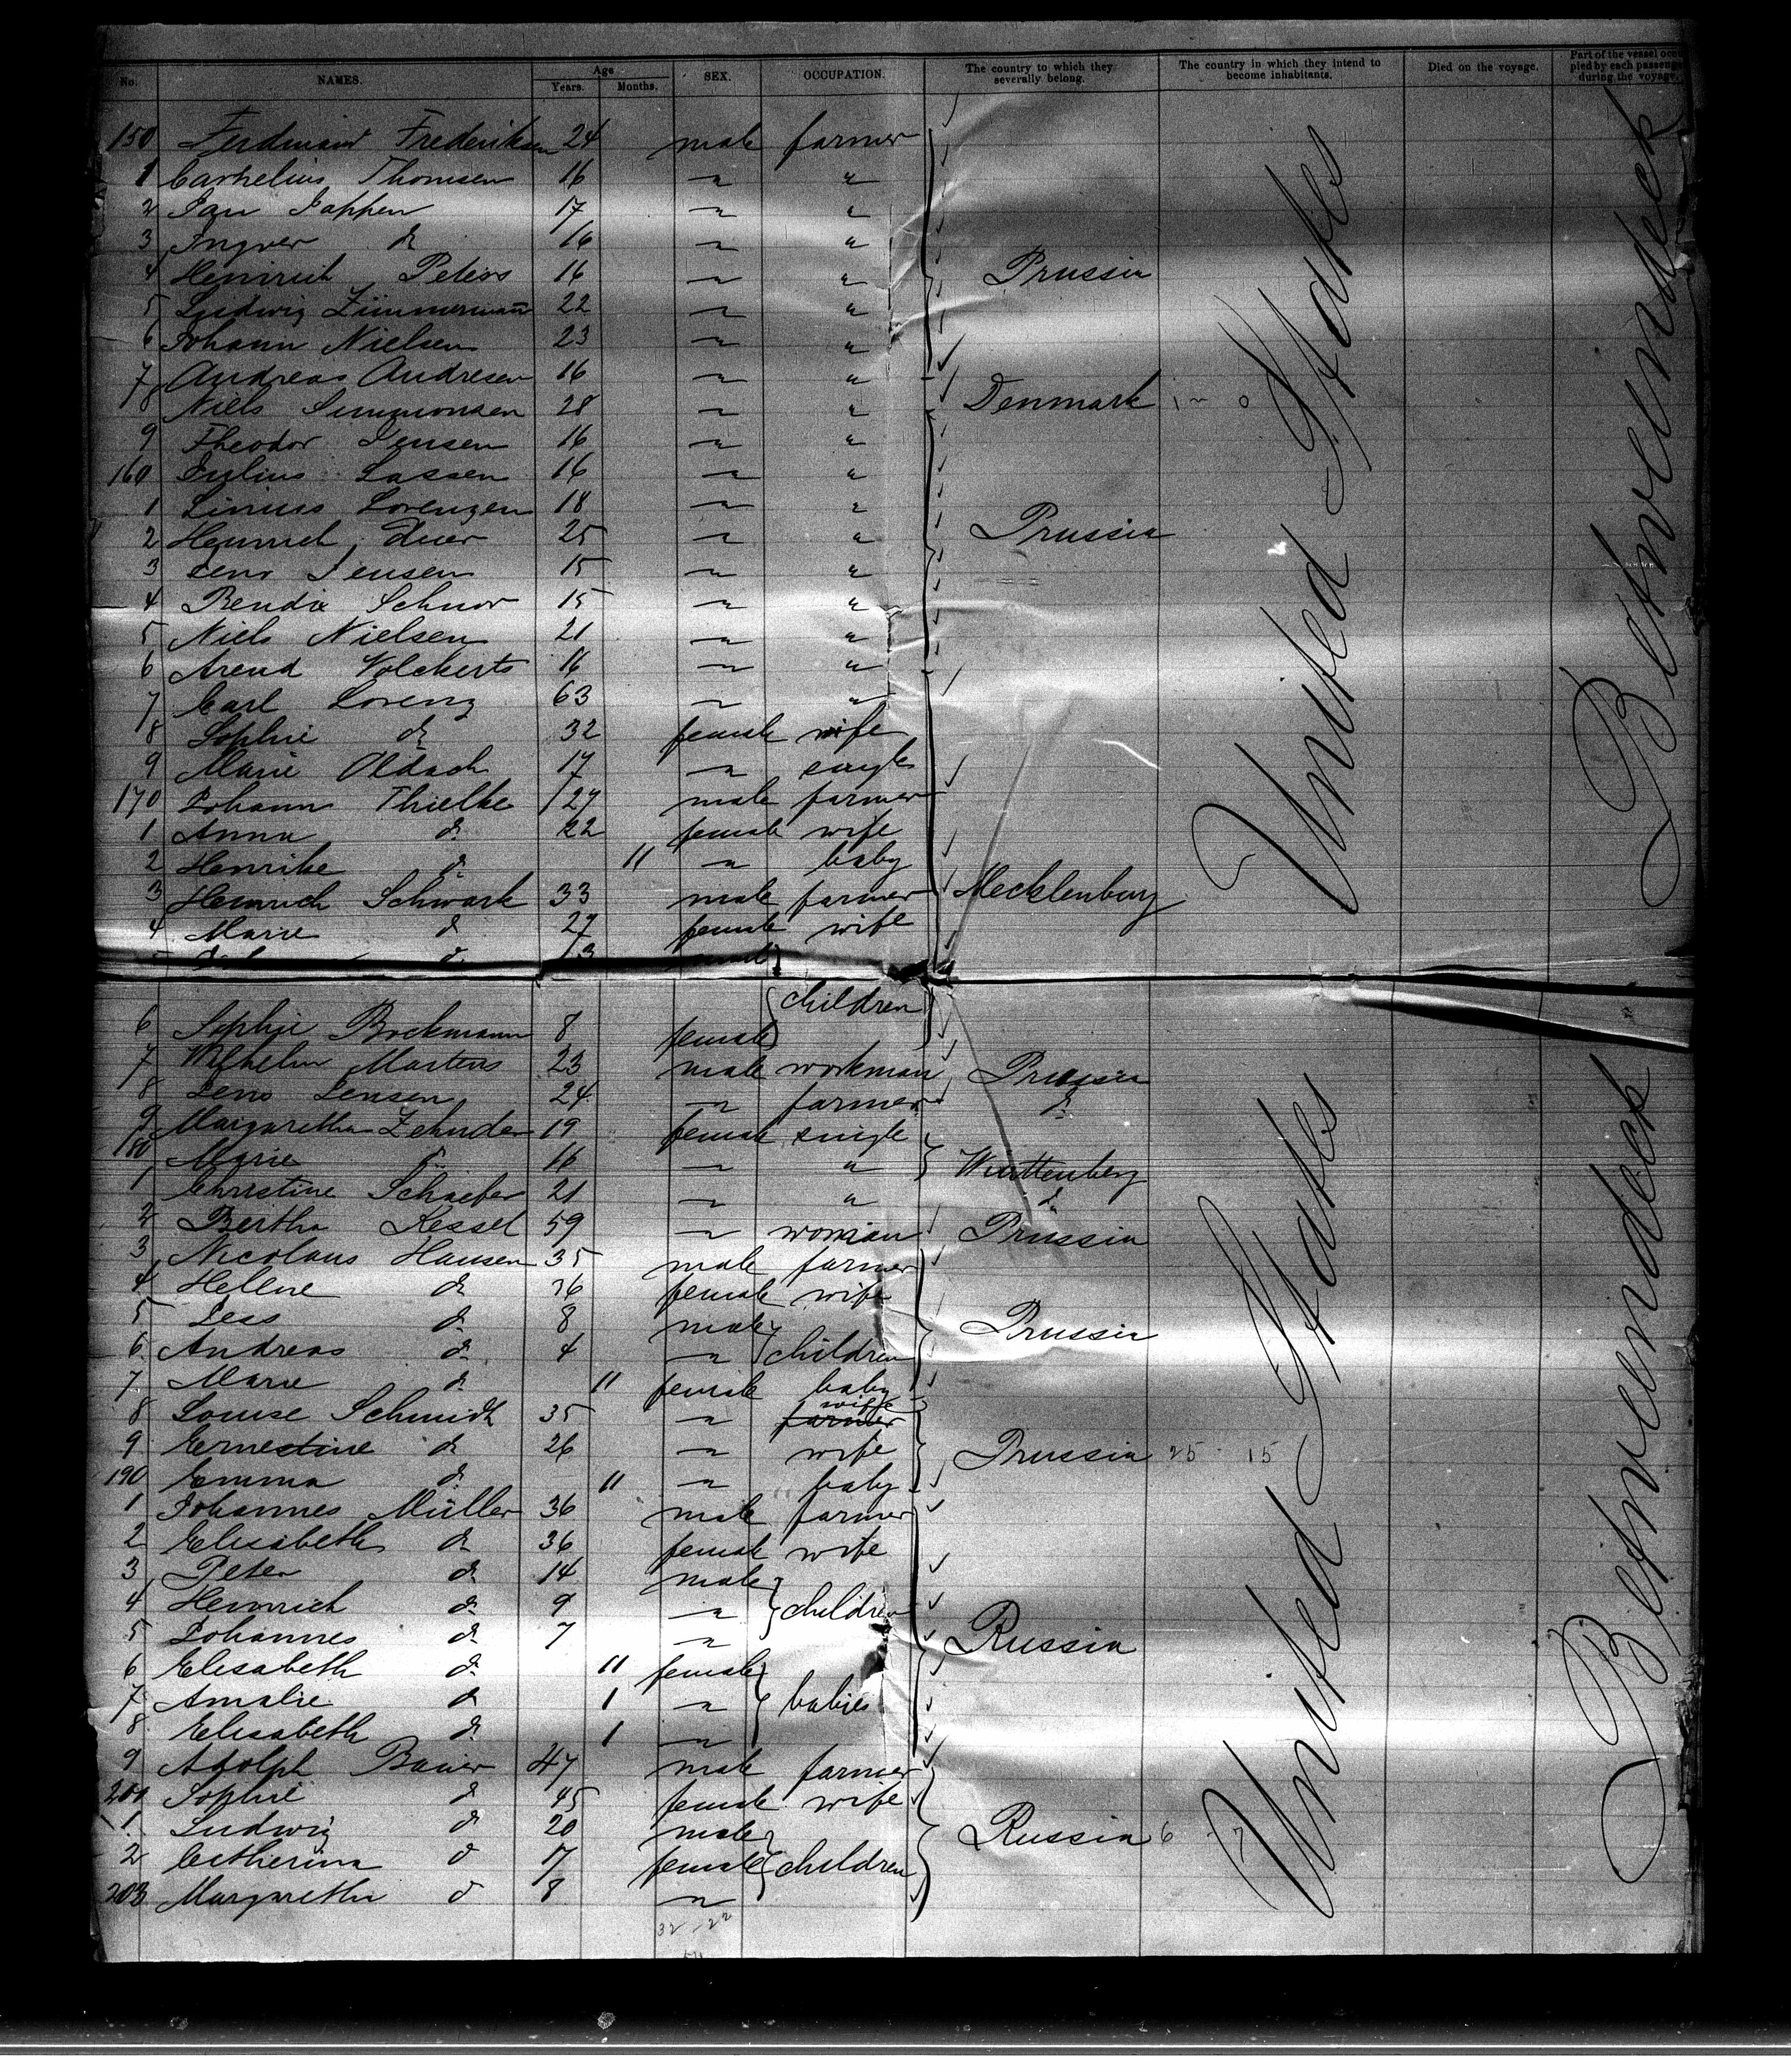 No. NAMES. Age Years. Months. SEX. OCCUPATION. The country to which they severally belong. The country in which they intend to become inhabitants. Died on the voyage. Part of the vessel occupied by each passenger during the voyage.
150 Ferdinand Frederiksen 24 male farmer
1 Carhelius Thomsen 16 " "
2 Jan Jappen 17 " "
3 Ingver do 16 " "
4 Heinrich Peters 16 " " Prussia
5 Ludwig Zimmermann 22 " "
6 Johann Nielsen 23 " "
7 Andreas Andresen 16 " "
8 Niels Simmonsen 28 " " Denmark
9 Theodor Jensen 16 " "
160 Julius Lassen 16 " "
1 Linius Lorenzen 18 " "
2 Heinrich 25 " " Prussia
3 Jens Jensen 15 " "
4 Bendix Schnor 15 " "
5 Niels Nielsen 21 " "
6 Arend Volckerts 16 " "
7 Carl Lorenz 63 " "
8 Sophie do 32 female wife
9 Marie Oldach 17 " single
170 Johann Thielke 27 male farmer
1 Anna do 22 female wife
2 Henrike do 11 " baby
3 Heinrich Schwark 33 male farmer Mecklenburg
4 Marie do 27 female wife
5 do 3
children
6 Sophie Brockmann 8 female
7 Wilhelm Martens 23 male workman Prussia
8 Jens Jensen 24 " farmer do
9 Margaretha Zehnder 19 female single
180 Marie do 16 " " Wurttenberg
1 Christine Schaefer 21 " " do
2 Bertha Kessel 59 " woman Prussia
3 Nicolaus Hansen 35 male farmer
4 Hellene do 36 female wife
5 Jess do 8 male Prussia
6 Andreas do 4 " children
7 Marie do 11 female baby
8 Louise Schmidt 35 " farmer wiffe
9 Ernestine do 26 " wife Prussia 25 15
190 Emma do 11 " baby
1 Johannes Müller 36 male farmer
2 Elisabeth do 36 female wife
3 Peter do 14 male
4 Heinrich do 9 " children
5 Johannes do 7 " Russia
6 Elisabeth do 11 female
7 Amalie do 1 " babies
8 Elisabeth do 1 "
9 Adolph Bauer 47 male farmer
200 Sophie do 45 female wife
1 Ludwig do 20 male Russia 6 7
2 Catherina do 17 female children
203 Margaretha do 8 "
32 - 22
54
United States
Betweendeck
United States
Betweendeck